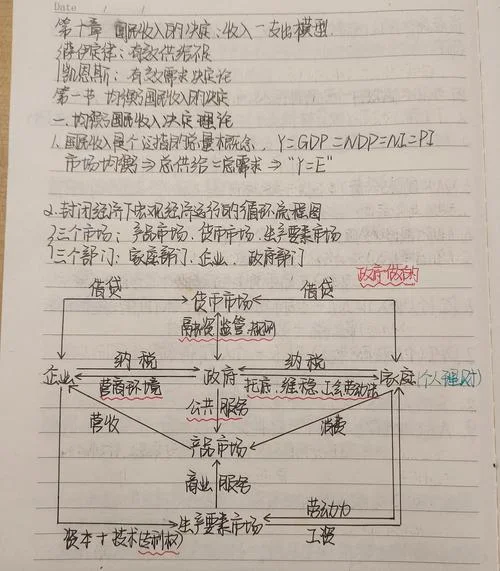 Date
第十章 国民收入的决定：收入—支出模型
萨伊定律：有效供给论
凯恩斯：有效需求决定论
第一节 均衡国民收入的决定
一、均衡国民收入决定理论
1、国民收入是个泛指的总量概念，Y=GDP=NDP=NI=PI
市场均衡⇒总供给=总需求⇒"Y=E"
2、封闭经济下宏观经济运行的循环流程图
三个市场：产品市场、货币市场、生产要素市场
三个部门：家庭部门、企业、政府部门
政府做的
借贷 货币市场 借贷
融投资 监管、规则
纳税 纳税
企业 政府 家庭(个人理财)
营商环境 托底、维稳、工会劳动法
公共服务
营收 消费
产品市场
商业服务
劳动力
生产要素市场
资本+技术(专利权) 工资